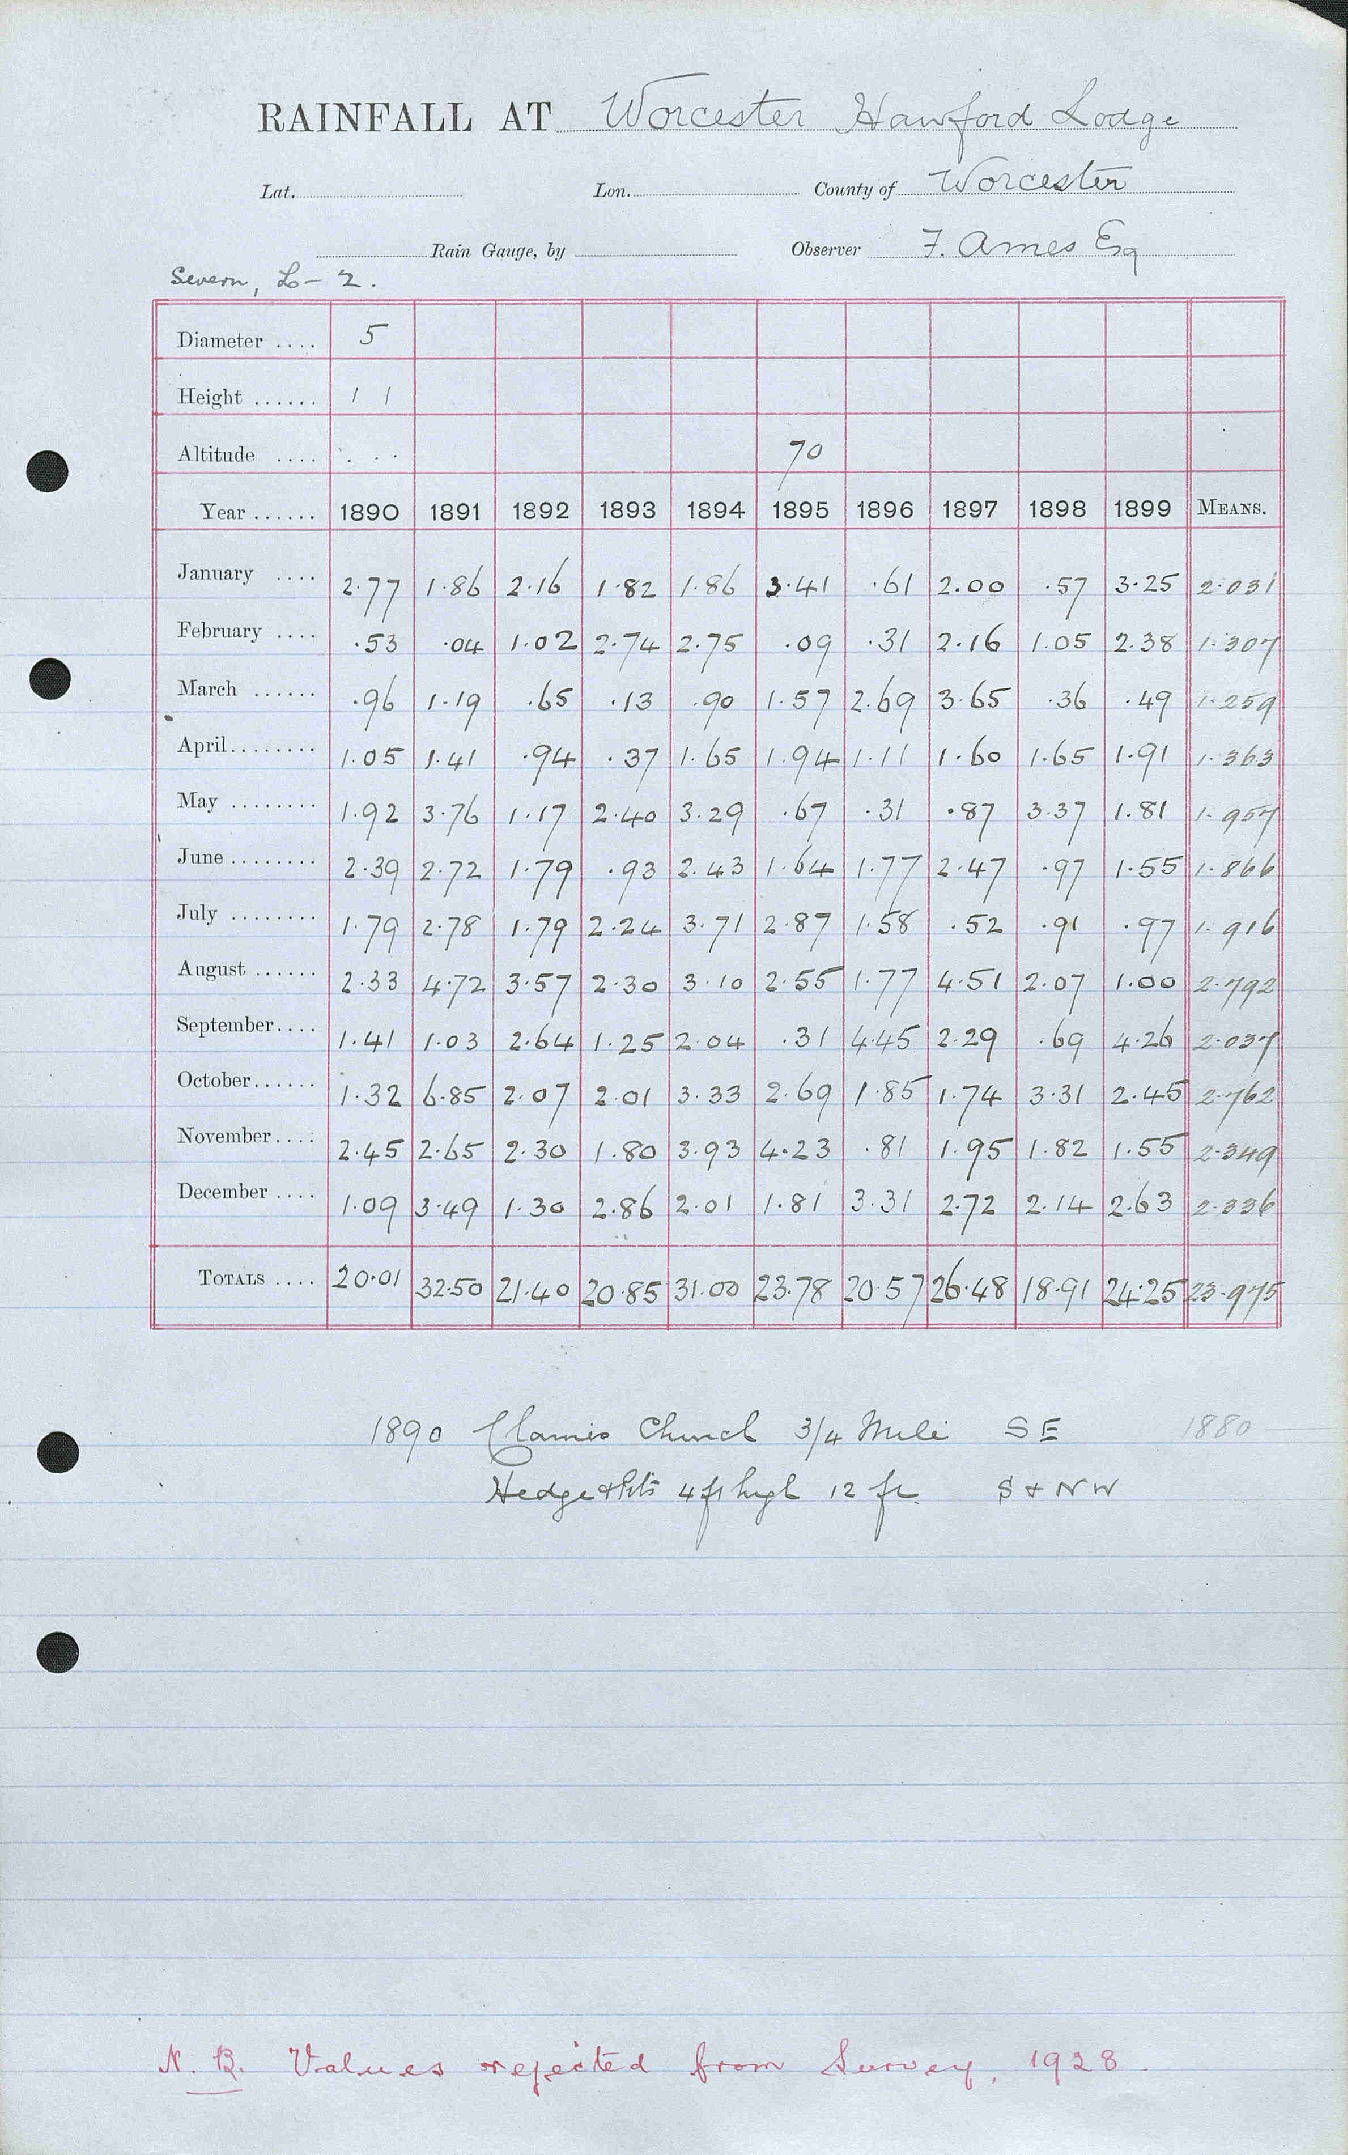 RAINFALL AT Worcester Hawford Lodge
Lat. Lon. County of Worcester
Rain Gauge, by Observer F. Ames Esq
Severn, L - 2.
Diameter .... 5
Height ...... 1 1
Altitude .... . . . 70
Year ...... 1890 1891 1892 1893 1894 1895 1896 1897 1898 1899 MEANS.
January .... 2.77 1.86 2.16 1.82 1.86 3.41 .61 2.00 .57 3.25 2.031
February .... .53 .04 1.02 2.74 2.75 .09 .31 2.16 1.05 2.38 1.307
March ...... .96 1.19 .65 .13 .90 1.57 2.69 3.65 .36 .49 1.259
April........ 1.05 1.41 .94 .37 1.65 1.94 1.11 1.60 1.65 1.91 1.363
May ........ 1.92 3.76 1.17 2.40 3.29 .67 .31 .87 3.37 1.81 1.957
June ........ 2.39 2.72 1.79 .93 2.43 1.64 1.77 2.47 .97 1.55 1.866
July ........ 1.79 2.78 1.79 2.24 3.71 2.87 1.58 .52 .91 .97 1.916
August ...... 2.33 4.72 3.57 2.30 3.10 2.55 1.77 4.51 2.07 1.00 2.792
September.... 1.41 1.03 2.64 1.25 2.04 .31 4.45 2.29 .69 4.26 2.037
October...... 1.32 6.85 2.07 2.01 3.33 2.69 1.85 1.74 3.31 2.45 2.762
November.... 2.45 2.65 2.30 1.80 3.93 4.23 .81 1.95 1.82 1.55 2.349
December .... 1.09 3.49 1.30 2.86 2.01 1.81 3.31 2.72 2.14 2.63 2.336
TOTALS .... 20.01 32.50 21.40 20.85 31.00 23.78 20.57 26.48 18.91 24.25 23.975
1890 Claines Church 3/4 Mile SE 1880
Hedge 4 ft high 12 ft S + NW
N. B. Values rejected from Survey, 1928.